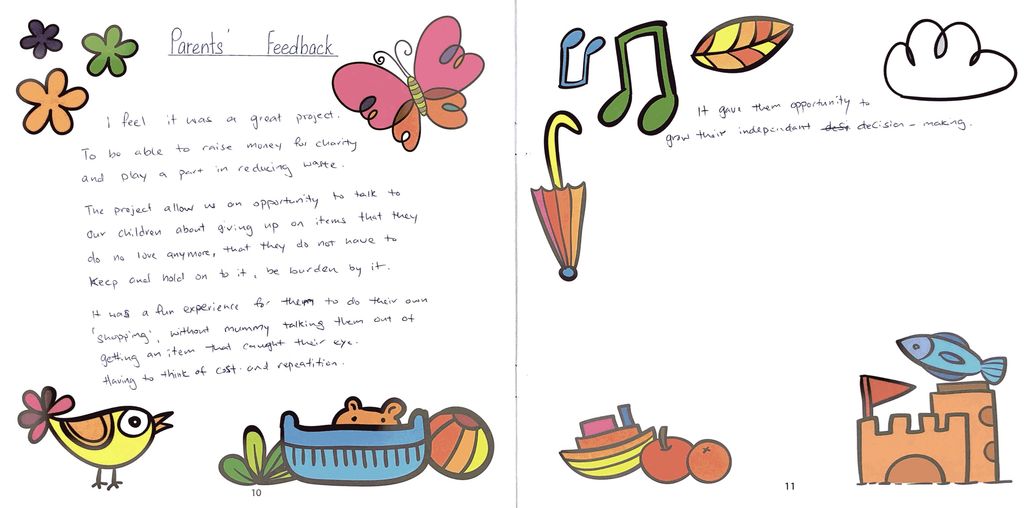 Parents' Feedback
I feel it was a great project.
To be able to raise money for charity
and play a part in reducing waste.
The project allow us an opportunity to talk to
our children about giving up on items that they
do no love anymore, that they do not have to
keep and hold on to it, be burden by it.
It was a fun experience for them to do their own
'shopping', without mummy talking them out of
getting an item that caught their eye.
Having to think of cost and repeatition.
10
It gave them opportunity to
grow their independant decision-making.
11